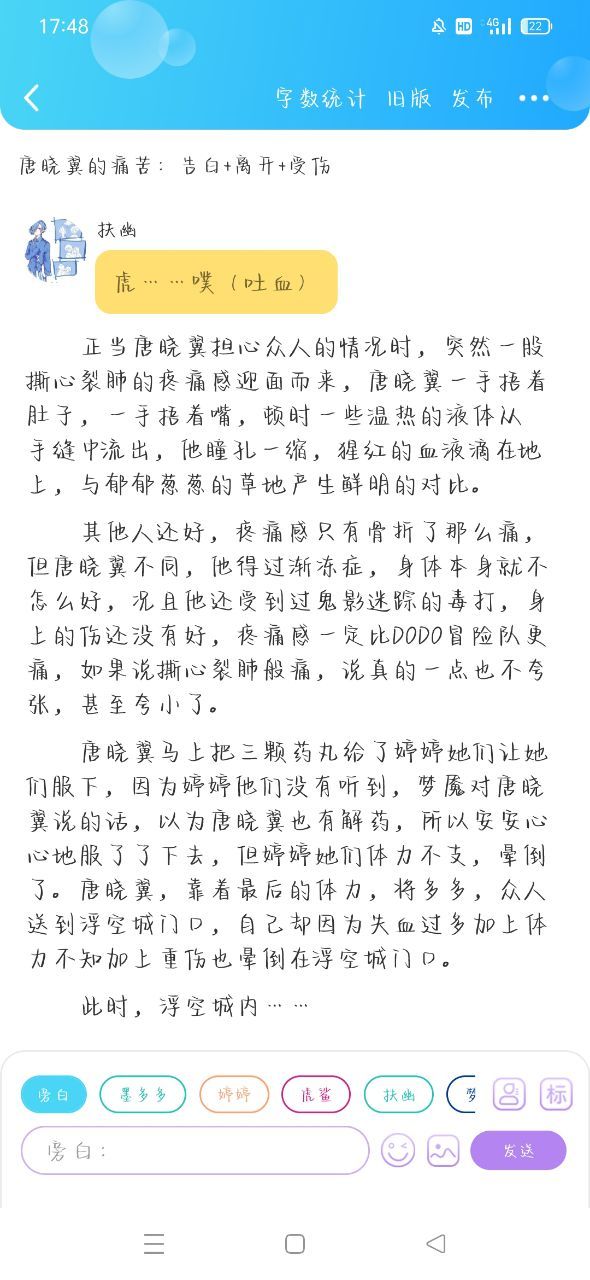 17:48
HD
4G
22
字数统计 旧版 发布
唐晓翼的痛苦：告白+离开+受伤
扶幽
虎……噗（吐血）
正当唐晓翼担心众人的情况时，突然一股
撕心裂肺的疼痛感迎面而来，唐晓翼一手捂着
肚子，一手捂着嘴，顿时一些温热的液体从
手缝中流出，他瞳孔一缩，猩红的血液滴在地
上，与郁郁葱葱的草地产生鲜明的对比。
其他人还好，疼痛感只有骨折了那么痛，
但唐晓翼不同，他得过渐冻症，身体本身就不
怎么好，况且他还受到过鬼影迷踪的毒打，身
上的伤还没有好，疼痛感一定比DODO冒险队更
痛，如果说撕心裂肺般痛，说真的一点也不夸
张，甚至夸小了。
唐晓翼马上把三颗药丸给了婷婷她们让她
们服下，因为婷婷他们没有听到，梦魇对唐晓
翼说的话，以为唐晓翼也有解药，所以安安心
心地服了了下去，但婷婷她们体力不支，晕倒
了。唐晓翼，靠着最后的体力，将多多，众人
送到浮空城门口，自己却因为失血过多加上体
力不知加上重伤也晕倒在浮空城门口。
此时，浮空城内……
旁白 墨多多 婷婷 虎鲨 扶幽 梦 标
旁白：
发送